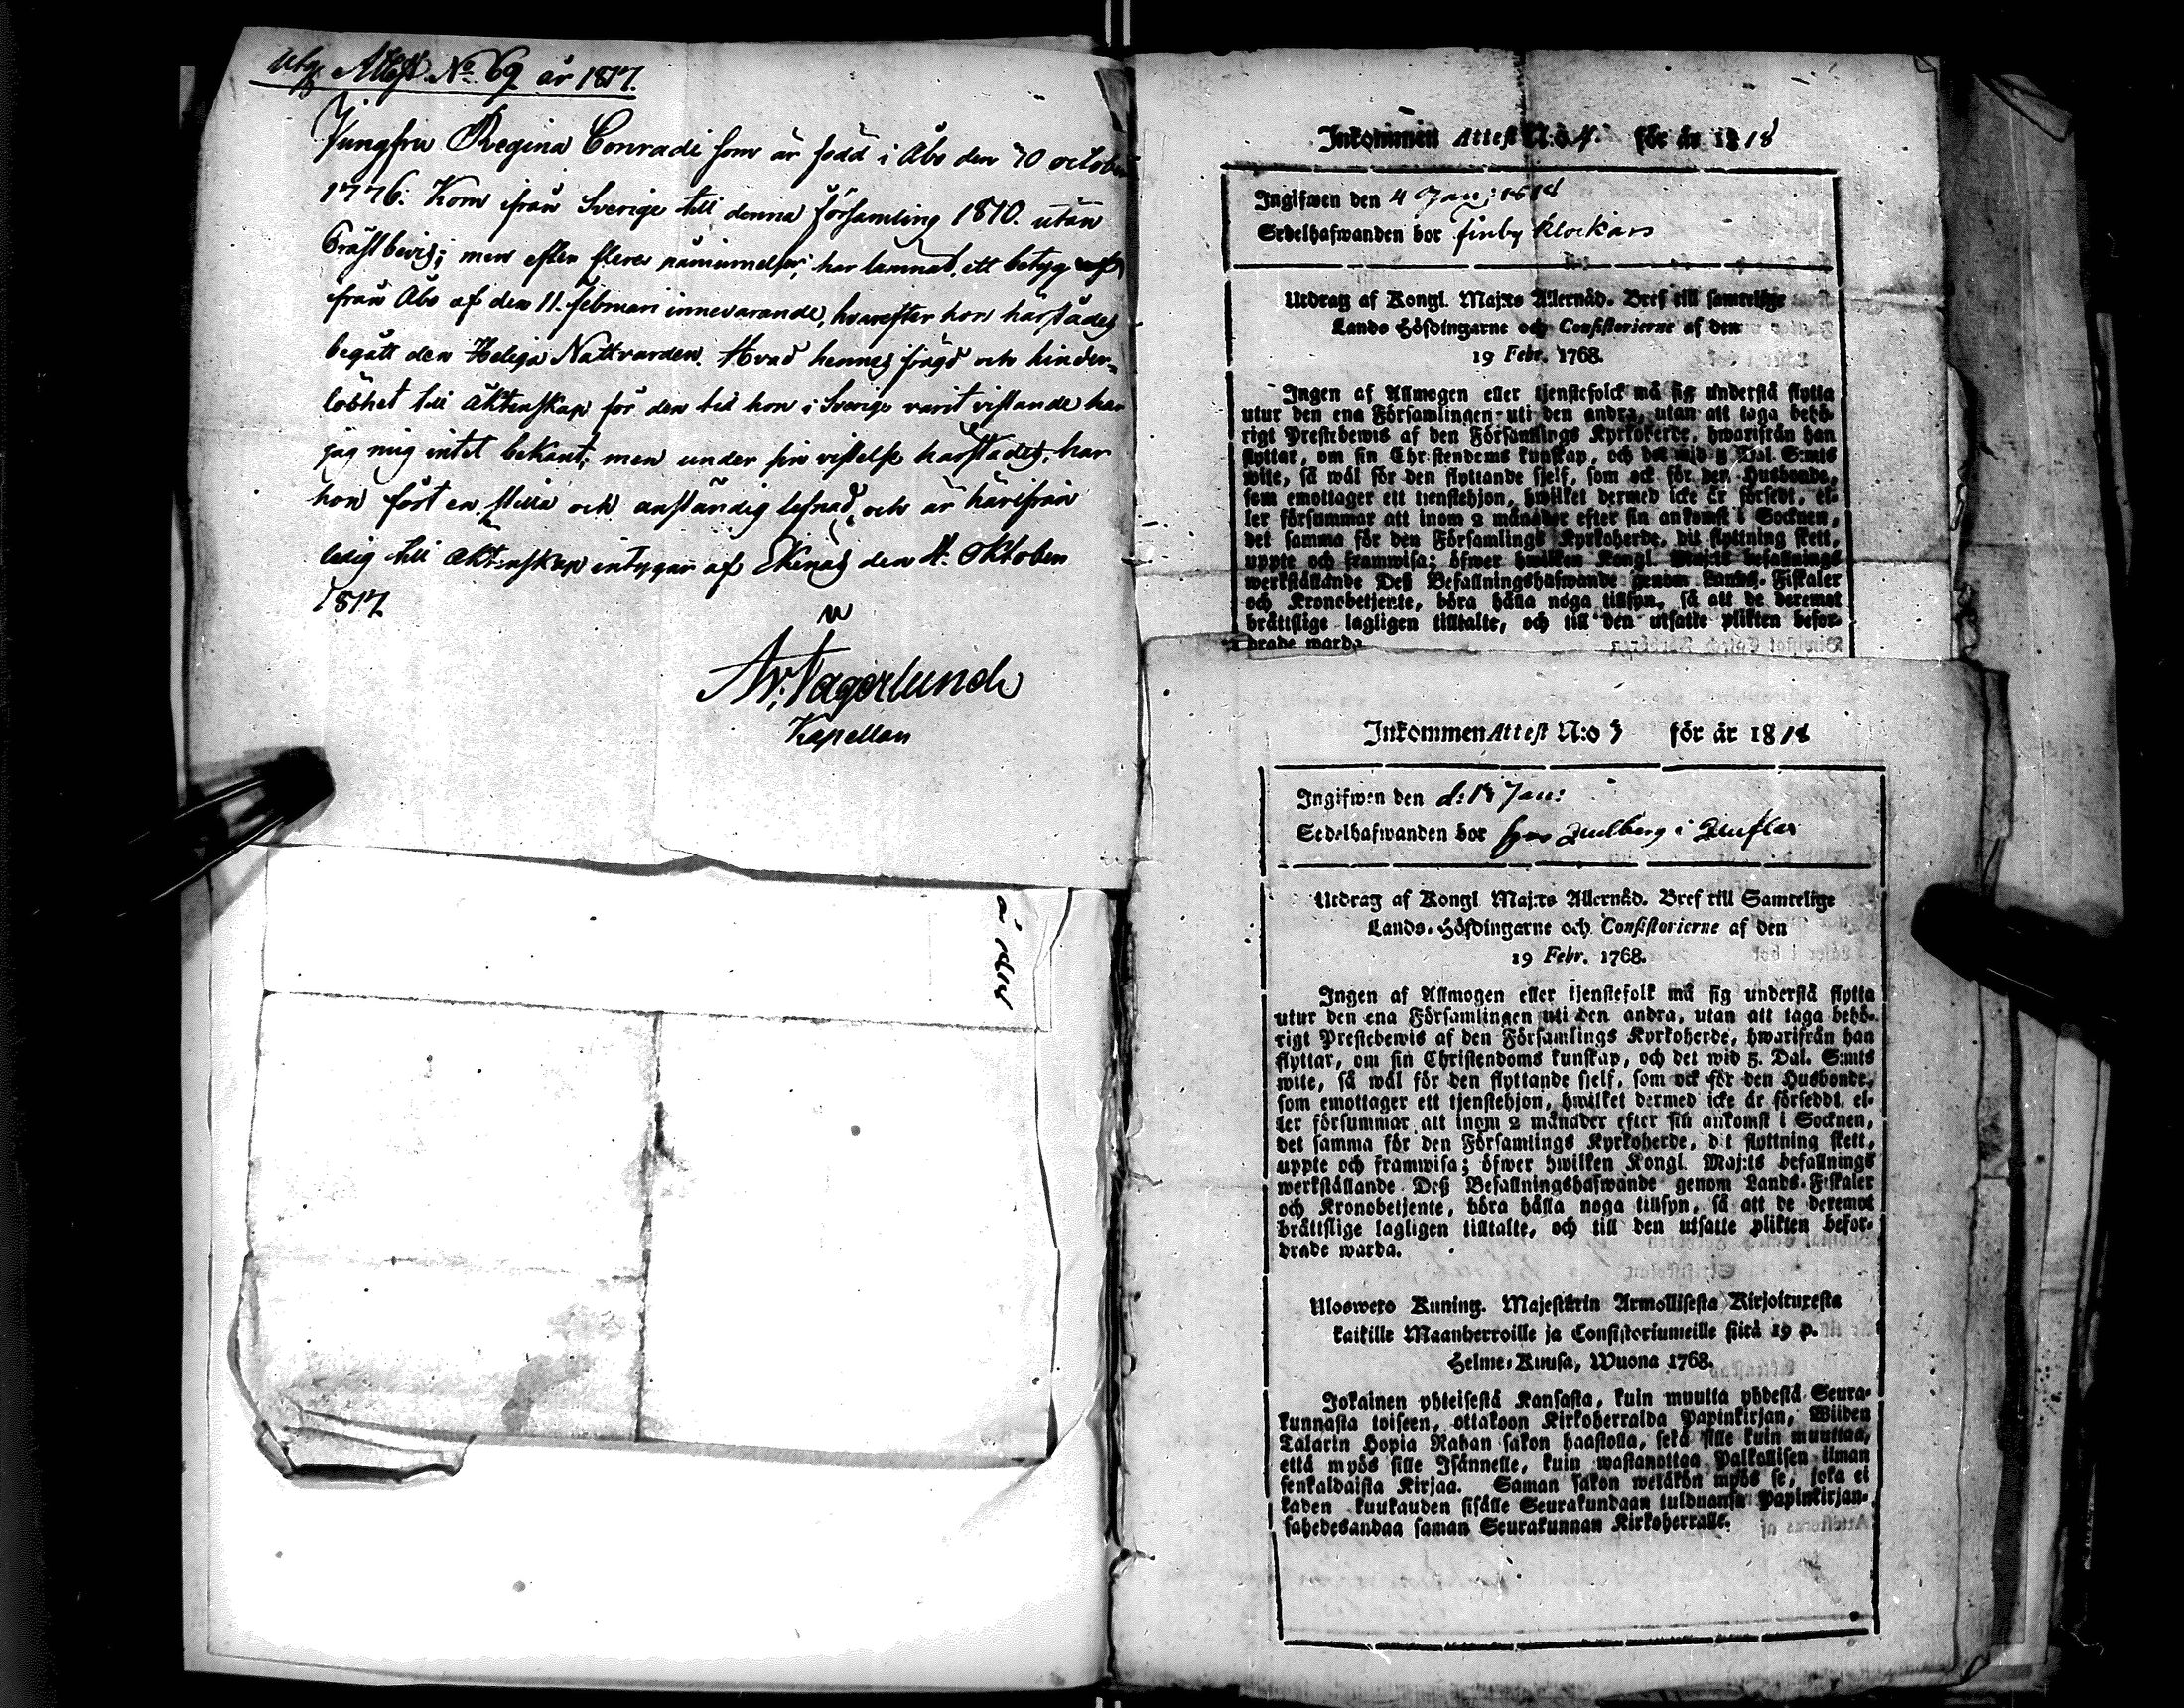 Utg. Attest No 69 år 1817.
Jungfru Regina Conradi som är född i Åbo den 10 octobr
1776. Kom ifrån Sverige till denna församling 1810. utan
Prästbevis; men efter flera påminnelser, har lamnat, ett betyg
ifrån Åbo af den 11. februari innevarande, hvarefter hon härstädes
begått den Heliga Nattvarden. Hvad hennes frägd och hinder-
löshet till äktenskap för den tid hon i Sverige varit vistande har
jag mig intet bekant; men under sin vistelse härstädes, har
hon fört en stilla och anständig lefnad, och är härifrån
ledig till äktenskap intygar af Ekenäs den 4. Oktober
1817
Fagerlund
Kapellan
år 1818
Inkommen Attest N:o 4. för år 1818
Ingifwen den 4 Jan: 1818
Sedelhafwanden bor finby Klockars
Utdrag af Kongl. Maj:ts Allernåd. Bref till samtelige
Lands Höfdingarne och Consistorierne af den
19 Febr. 1768.
Ingen af Allmogen eller tjenstefolck må sig understå flytta
utur den ena Församlingen uti den andra, utan att taga behö-
rigt Prestebewis af den Församlings Kyrkoherde, hwarifrån han
flyttar, om sin Christendoms kunskap, och det wid 5 Dal. S:mts
wite, så wäl för den flyttande sjelf, som ock för den Husbonde,
som emottager ett tjenstehjon, hwilket dermed icke är försedt, el-
ler försummar att inom 2 månader efter sin ankomst i Socknen,
det samma för den Församlings Kyrkoherde, dit flyttning skett,
uppte och framwisa; öfwer hwilken Kongl. Maj:ts befallnings
werkställande Deß Befallningshafwande genom Lands-Fiskaler
och Kronobetjente, böra hålla noga tillsyn, så att de deremot
brättslige lagligen tilltalte, och till den utsatte plikten befor-
drade warda
Inkommen Attest N:o 3 för år 1818
Ingifwen den d: 13 Jan:
Sedelhafwanden bor hos i
Utdrag af Kongl Maj:ts Allernåd. Bref till Samtelige
Lands-Höfdingarne och Consistorierne af den
19 Febr. 1768.
Ingen af Allmogen eller tjenstefolk må sig understå flytta
utur den ena Församlingen uti den andra, utan att taga behö-
rigt Prestebewis af den Församlings Kyrkoherde, hwarifrån han
flyttar, om sin Christendoms kunskap, och det wid 5. Dal. S:mts
wite, så wäl för den flyttande sjelf, som ock för den Husbonde,
som emottager ett tjenstehjon, hwilket dermed icke är förseddt, el-
ler försummar att inom 2 månader efter sin ankomst i Socknen,
det samma för den Församlings Kyrkoherde, dit flyttning skett,
uppte och framwisa; öfwer hwilken Kongl. Maj:ts befallnings
werkställande Deß Befallningshafwande genom Lands-Fiskaler
och Kronobetjente, böra hålla noga tillsyn, så att de deremot
brättslige lagligen tilltalte, och till den utsatte plikten befor-
drade warda.
Uloswето Kuning. Majestätin Armollisesta Kirjoituxesta
kaikille Maanherroille ja Consistoriumeille siitä 19 p.
Helme-Kuusa, Wuona 1768.
Jokainen yhteisestä Kansasta, kuin muutta yhdestä Seura-
kunnasta toiseen, ottakoon Kirkoherralda Papinkirjan, Wiiden
Talarin Hopia Rahan sakon haastolla, sekä sille kuin muuttaa,
että myös sille Isännelle, kuin wastanottaa Palkollisen ilman
senkaldaista Kirjaa. Saman sakon wetäkön myös se, joka ei
kahden kuukauden sisälle Seurakundaan tulduansa Papinkirjan-
sa hedesandaa saman Seurakunnan Kirkoherralle.